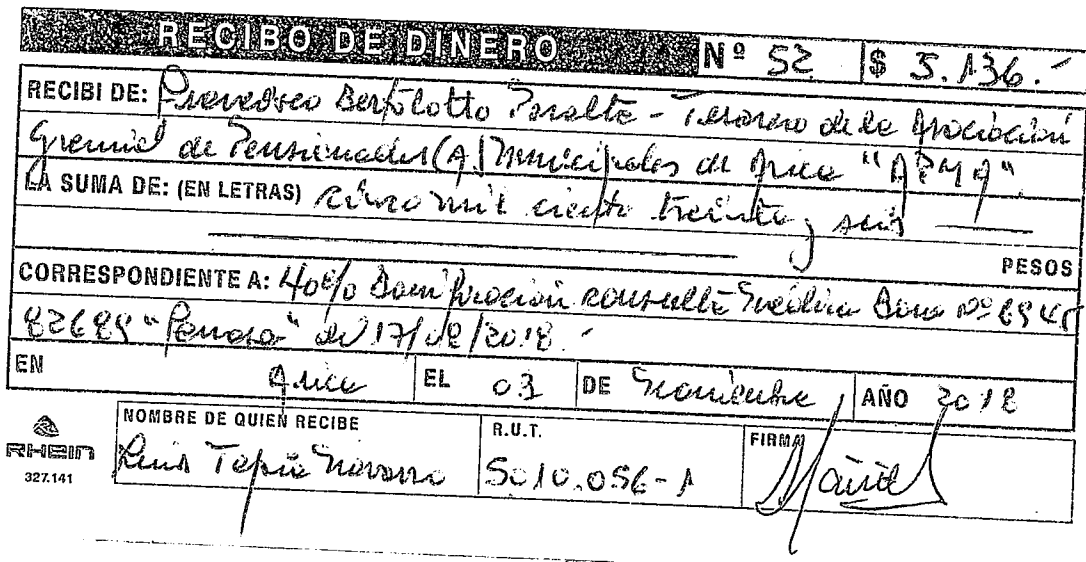 RECIBO DE DINERO Nº 52 $ 5.136.-
RECIBI DE: Francisco Bertolotto Peralta - Tesorero de la Asociación
Gremial de Pensionados (A.) Municipales de Arica "APMA"
LA SUMA DE: (EN LETRAS) cinco mil ciento treinta y seis
PESOS
CORRESPONDIENTE A: 40% Bonificación consulta Médica Bono Nº 6945
82689 del 17/08/2018.-
EN Arica EL 03 DE AÑO 2018
NOMBRE DE QUIEN RECIBE R.U.T. FIRMA
Luis Tapia Navarro 5010.056-1
RHEIN
327.141